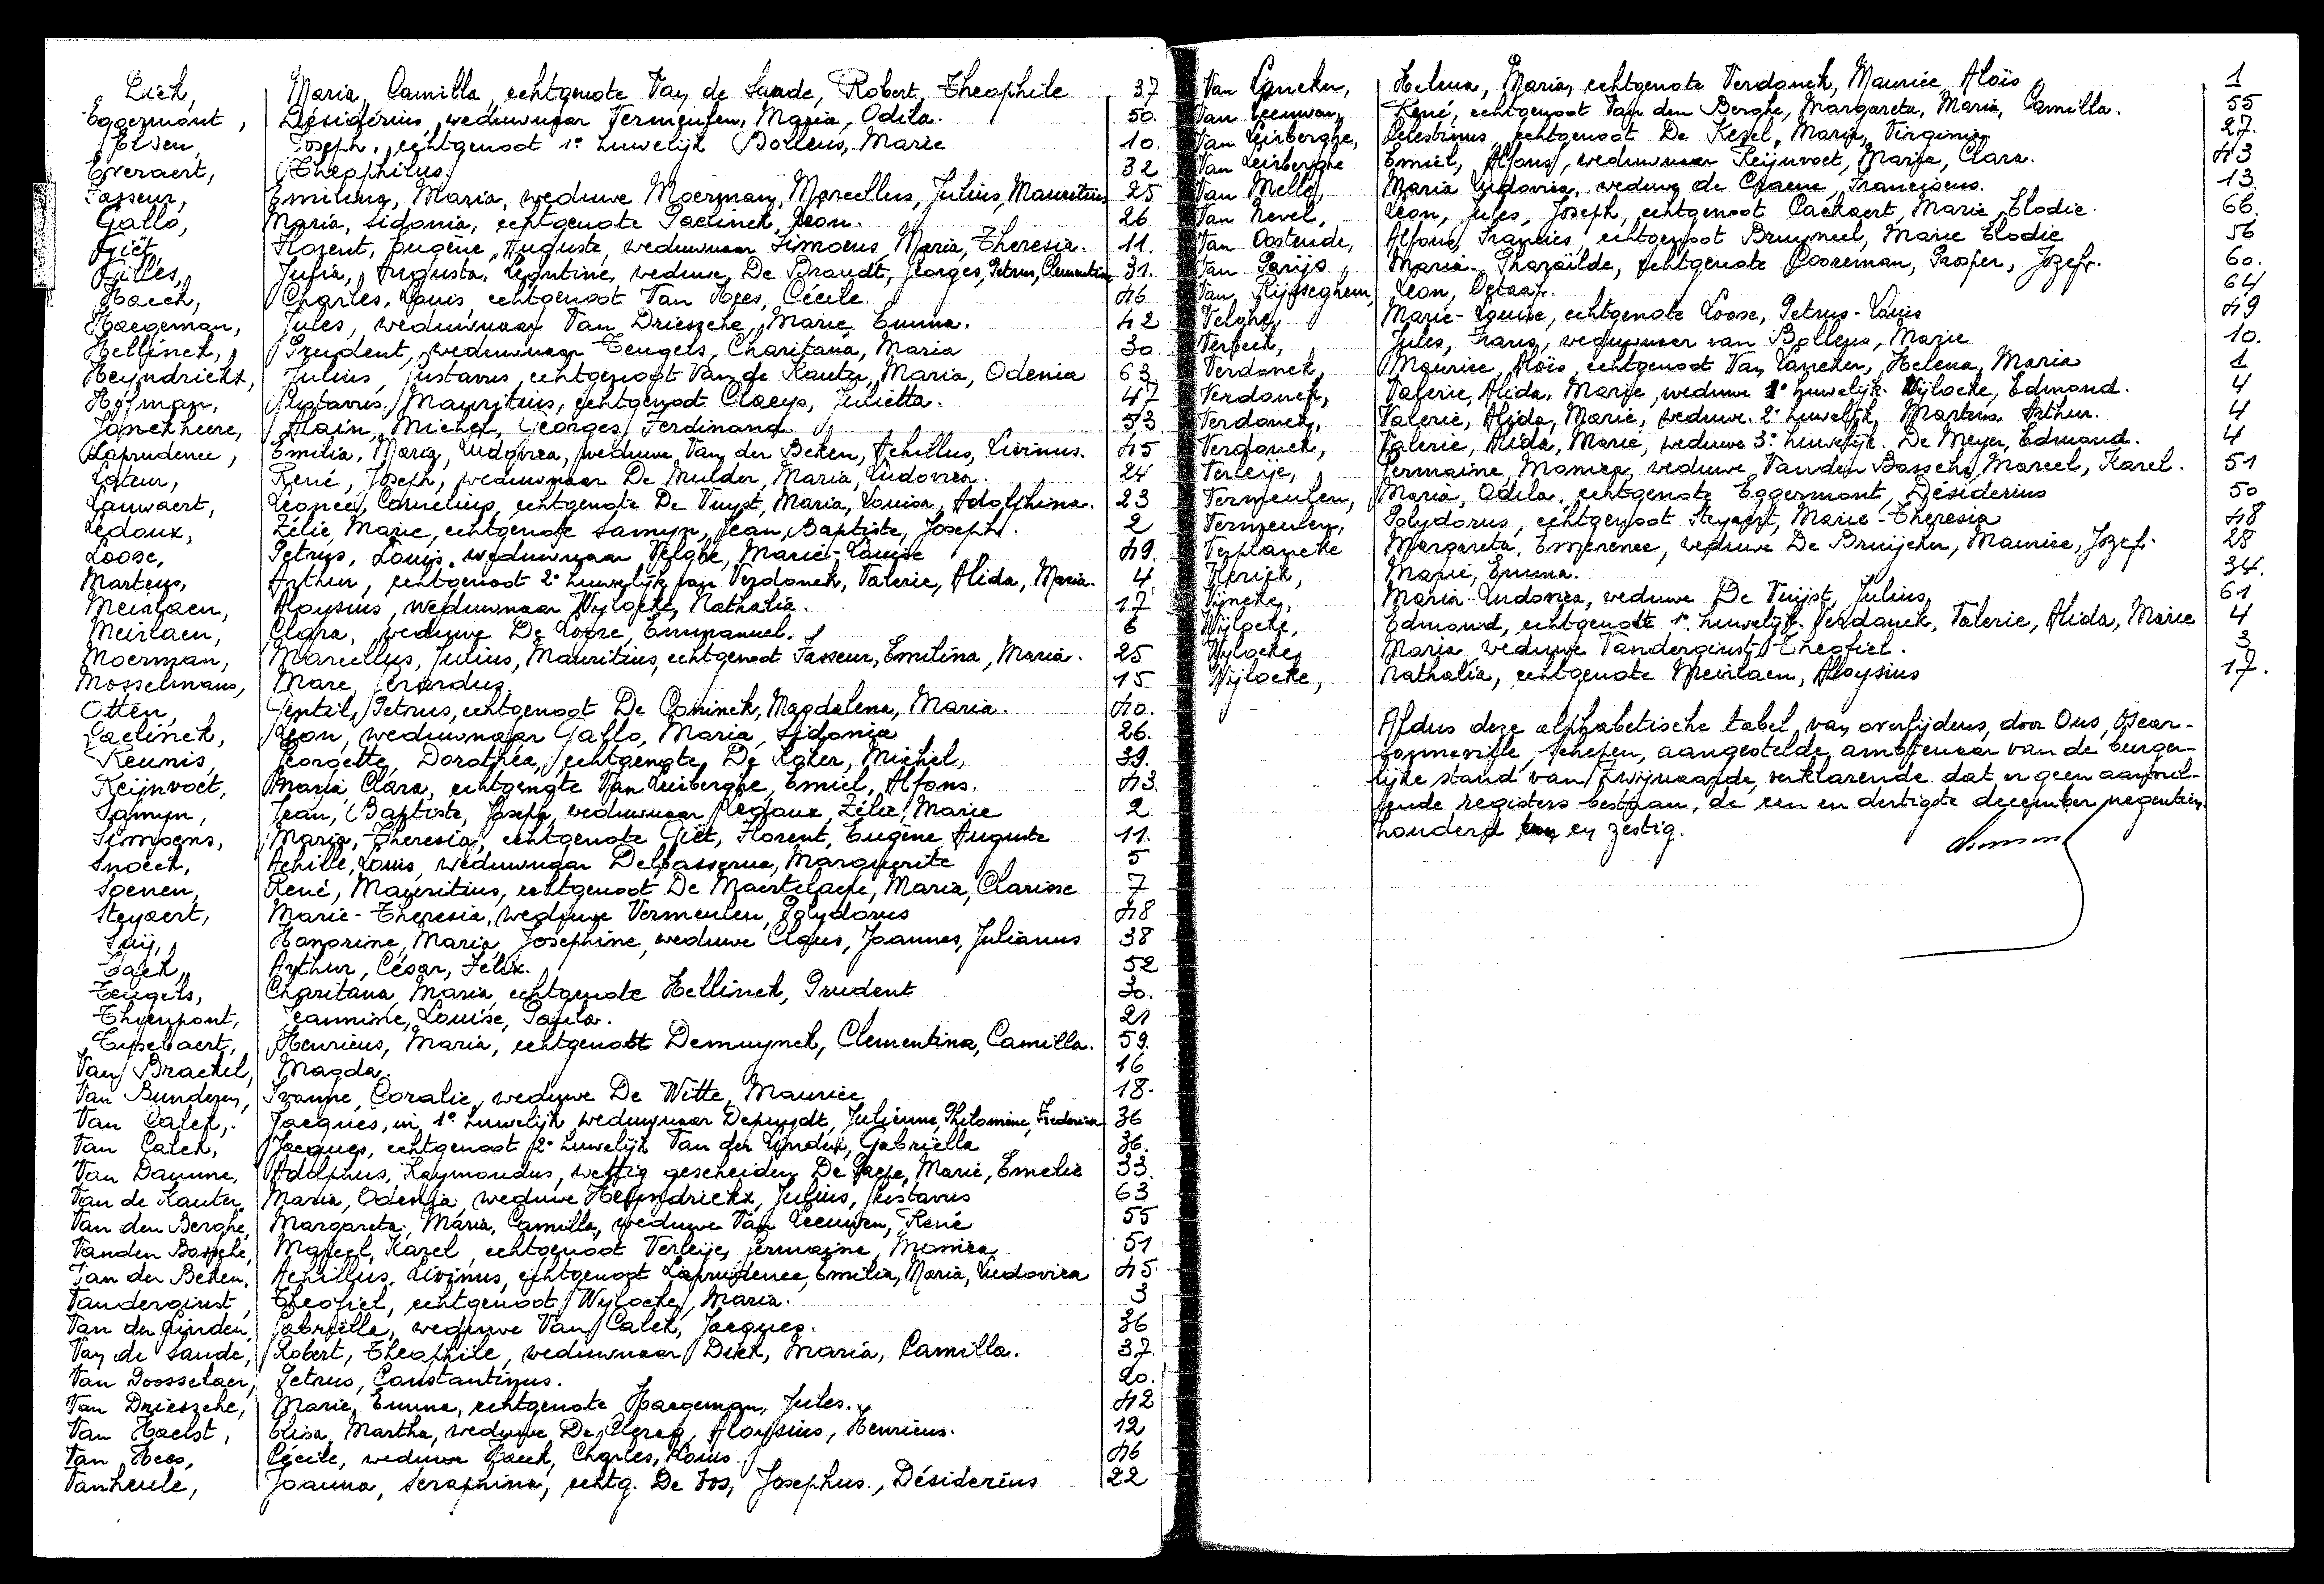 Dick, Maria, Camilla, echtgenote Van de Sande, Robert, Theophile 37
Eggermont, Désidérius, weduwnaar Vermeulen, Maria, Odila. 50.
Elsen, Joseph, echtgenoot 1e huwelijk Bollens, Marie 10.
Everaert, Theophilus. 32
Fasseur, Emilina, Maria, weduwe Moerman, Marcellus, Julius, Mauritius 25
Gallo, Maria, Sidonia, echtgenote Paelinck, Leon. 26
Giët, Florent, Eugène, Auguste, weduwnaar Simoens, Maria, Theresia. 11.
Gilles, Julia, Augusta, Leontine, weduwe De Brandt, Georges, Petrus, Clementin 31.
Haeck, Charles, Louis, echtgenoot Van Hees, Cécile. 46
Haegeman, Jules, weduwnaar Van Driessche, Marie, Emma. 42
Hellinck, Prudent, weduwnaar Teugels, Charitana, Maria 30.
Heyndrickx, Julius, Gustavus, echtgenoot Van de Kauter, Maria, Odenia 63
Hofman, Gustavus, Mauritius, echtgenoot Claeys, Julietta. 47
Jonckheere, Alain, Michel, Georges, Ferdinand. 53
Laprudence, Emilia, Maria, Ludovica, weduwe Van der Beken, Achillus, Livinus. 45
Lateur, René, Joseph, weduwnaar De Mulder, Maria, Ludovica. 24
Lauwaert, Leonce, Cornelius, echtgenote De Vuyst, Maria, Louisa, Adolphina. 23
Ledoux, Zélie, Marie, echtgenote Samyn, Jean, Baptiste, Joseph. 2
Loose, Petrus, Louis, weduwnaar Velghe, Marie-Louise 49.
Martens, Arthur, echtgenoot 2e huwelijk van Verdonck, Valerie, Alida, Maria. 4
Meirlaen, Aloysius, weduwnaar Wylocke, Nathalia. 17
Meirlaen, Clara, weduwe De Loore, Emmanuel. 6
Moerman, Marcellus, Julius, Mauritius, echtgenoot Fasseur, Emilina, Maria. 25
Mosselmans, Marc, Gerardus, 15
Otten, Gentil, Petrus, echtgenoot De Coninck, Magdalena, Maria. 40.
Paelinck, Leon, weduwnaar Gallo, Maria, Sidonia 26.
Reunis, Georgette, Dorothéa, echtgenote De Koker, Michel, 39.
Reijnvoet, Maria, Clara, echtgenote Van Leirberghe, Emiel, Alfons. 43.
Samyn, Jean, Baptiste, Joseph, weduwnaar Ledoux, Zélie, Marie 2
Simoens, Maria, Theresia, echtgenote Giët, Florent, Eugène, Auguste 11.
Snoeck, Achille, Louis, weduwnaar Delbasserue, Marguerite 5
Soenen, René, Mauritius, echtgenoot De Maertelaere, Maria, Clarisse 7
Steyaert, Marie-Theresia, weduwe Vermeulen, Polydorus 48
Suij, Honorine, Maria, Josephine, weduwe Claus, Joannes, Julianus 38
Tack, Arthur, César, Felix. 52
Teugels, Charitana, Maria, echtgenote Hellinck, Prudent 30.
Thienpont, Jeannine, Louise, Paula. 21
Tijsebaert, Henricus, Maria, echtgenoot Demuynck, Clementina, Camilla. 59.
Van Brackel, Magda. 16
Van Bunderen, Ivonne, Coralie, weduwe De Witte, Maurice 18.
Van Calck, Jacques, in 1e huwelijk weduwnaar Depuydt, Julienne, Philomine, Frederica 36
Van Calck, Jacques, echtgenoot 2e huwelijk Van der Linden, Gabriëlla 36.
Van Damme, Adolphus, Raymondus, wettig gescheiden De Paepe, Marie, Emelie 33.
Van de Kauter, Maria, Odenia, weduwe Heyndrickx, Julius, Gustavus 63
Van den Berghe, Margareta, Maria, Camilla, weduwe Van Leeuwen, René 55
Vanden Bossche, Marcel, Karel, echtgenoot Verleije, Germaine, Monica 51
Van der Beken, Achillus, Livinus, echtgenoot Laprudence, Emilia, Maria, Ludovica 45.
Vanderginst, Theofiel, echtgenoot Wylocke, Maria. 3
Van der Linden, Gabriëlla, weduwe Van Calck, Jacques. 36
Van de Sande, Robert, Theophile, weduwnaar Dick, Maria, Camilla. 37.
Van Doosselaer, Petrus, Constantinus. 20.
Van Driessche, Marie, Emma, echtgenote Haegeman, Jules. 42
Van Haelst, Elisa, Martha, weduwe De Clercq, Aloysius, Henricus. 12
Van Hees, Cécile, weduwe Haeck, Charles, Louis 46
Vanheule, Joanna, Seraphina, echtg. De Vos, Josephus, Désiderius 22
Van Lancker, Helena, Maria, echtgenote Verdonck, Maurice, Aloïs 1
Van Leeuwen, René, echtgenoot Van den Berghe, Margareta, Maria, Camilla. 55
Van Leirberghe, Celestinus, echtgenoot De Kesel, Maria, Virginia 27.
Van Leirberghe Emiel, Alfons, weduwnaar Reijnvoet, Maria, Clara. 43
Van Melle, Maria Ludovica, weduwe de Craene, Franciscus. 13.
Van Nevel, Léon, Jules, Joseph, echtgenoot Cackaert, Marie, Elodie. 66.
Van Oostende, Alfons, Francies, echtgenoot Bruyneel, Marie Elodie 56
Van Parijs, Maria-Pharaïlde, echtgenote Cooreman, Prosper, Jozef. 60.
Van Rijsseghem, Leon, Octaaf. 64
Velghe, Marie-Louise, echtgenote Loose, Petrus-Louis 49
Verbeek, Jules, Frans, weduwnaar van Bollens, Marie 10.
Verdonck, Maurice, Aloïs, echtgenoot Van Lancker, Helena, Maria 1
Verdonck, Valerie, Alida, Marie, weduwe 1e huwelijk. Wijlocke, Edmond. 4
Verdonck, Valerie, Alida, Marie, weduwe. 2e huwelijk, Martens, Arthur. 4
Verdonck, Valerie, Alida, Marie, weduwe 3e huwelijk. De Meyer, Edmond. 4
Verleije, Germaine, Monica, weduwe Vanden Bossche, Marcel, Karel. 51
Vermeulen, Maria, Odila, echtgenote Eggermont, Désiderius 50
Vermeulen, Polydorus, echtgenoot Steyaert, Marie-Theresia 48
Verplancke Margareta, Emerence, weduwe De Bruijcker, Maurice, Jozef. 28
Vlerick, Marie, Emma. 34.
Vyncke, Maria-Ludovica, weduwe De Vuijst, Julius, 61
Wylocke, Edmond, echtgenoot 1e huwelijk. Verdonck, Valerie, Alida, Marie 4
Wylocke, Maria, weduwe Vanderginst, Theofiel. 3
Wijlocke, Nathalia, echtgenote Meirlaen, Aloysius 17.
Aldus deze alphabetische tabel van overlijdens, door Ons, Oscar
, schepen, aangestelde ambtenaar van de burger-
lijke stand van Zwijnaarde, verklarende dat er geen aanvul-
lende registers bestaan, de een en dertigste december negentien
honderd en zestig.